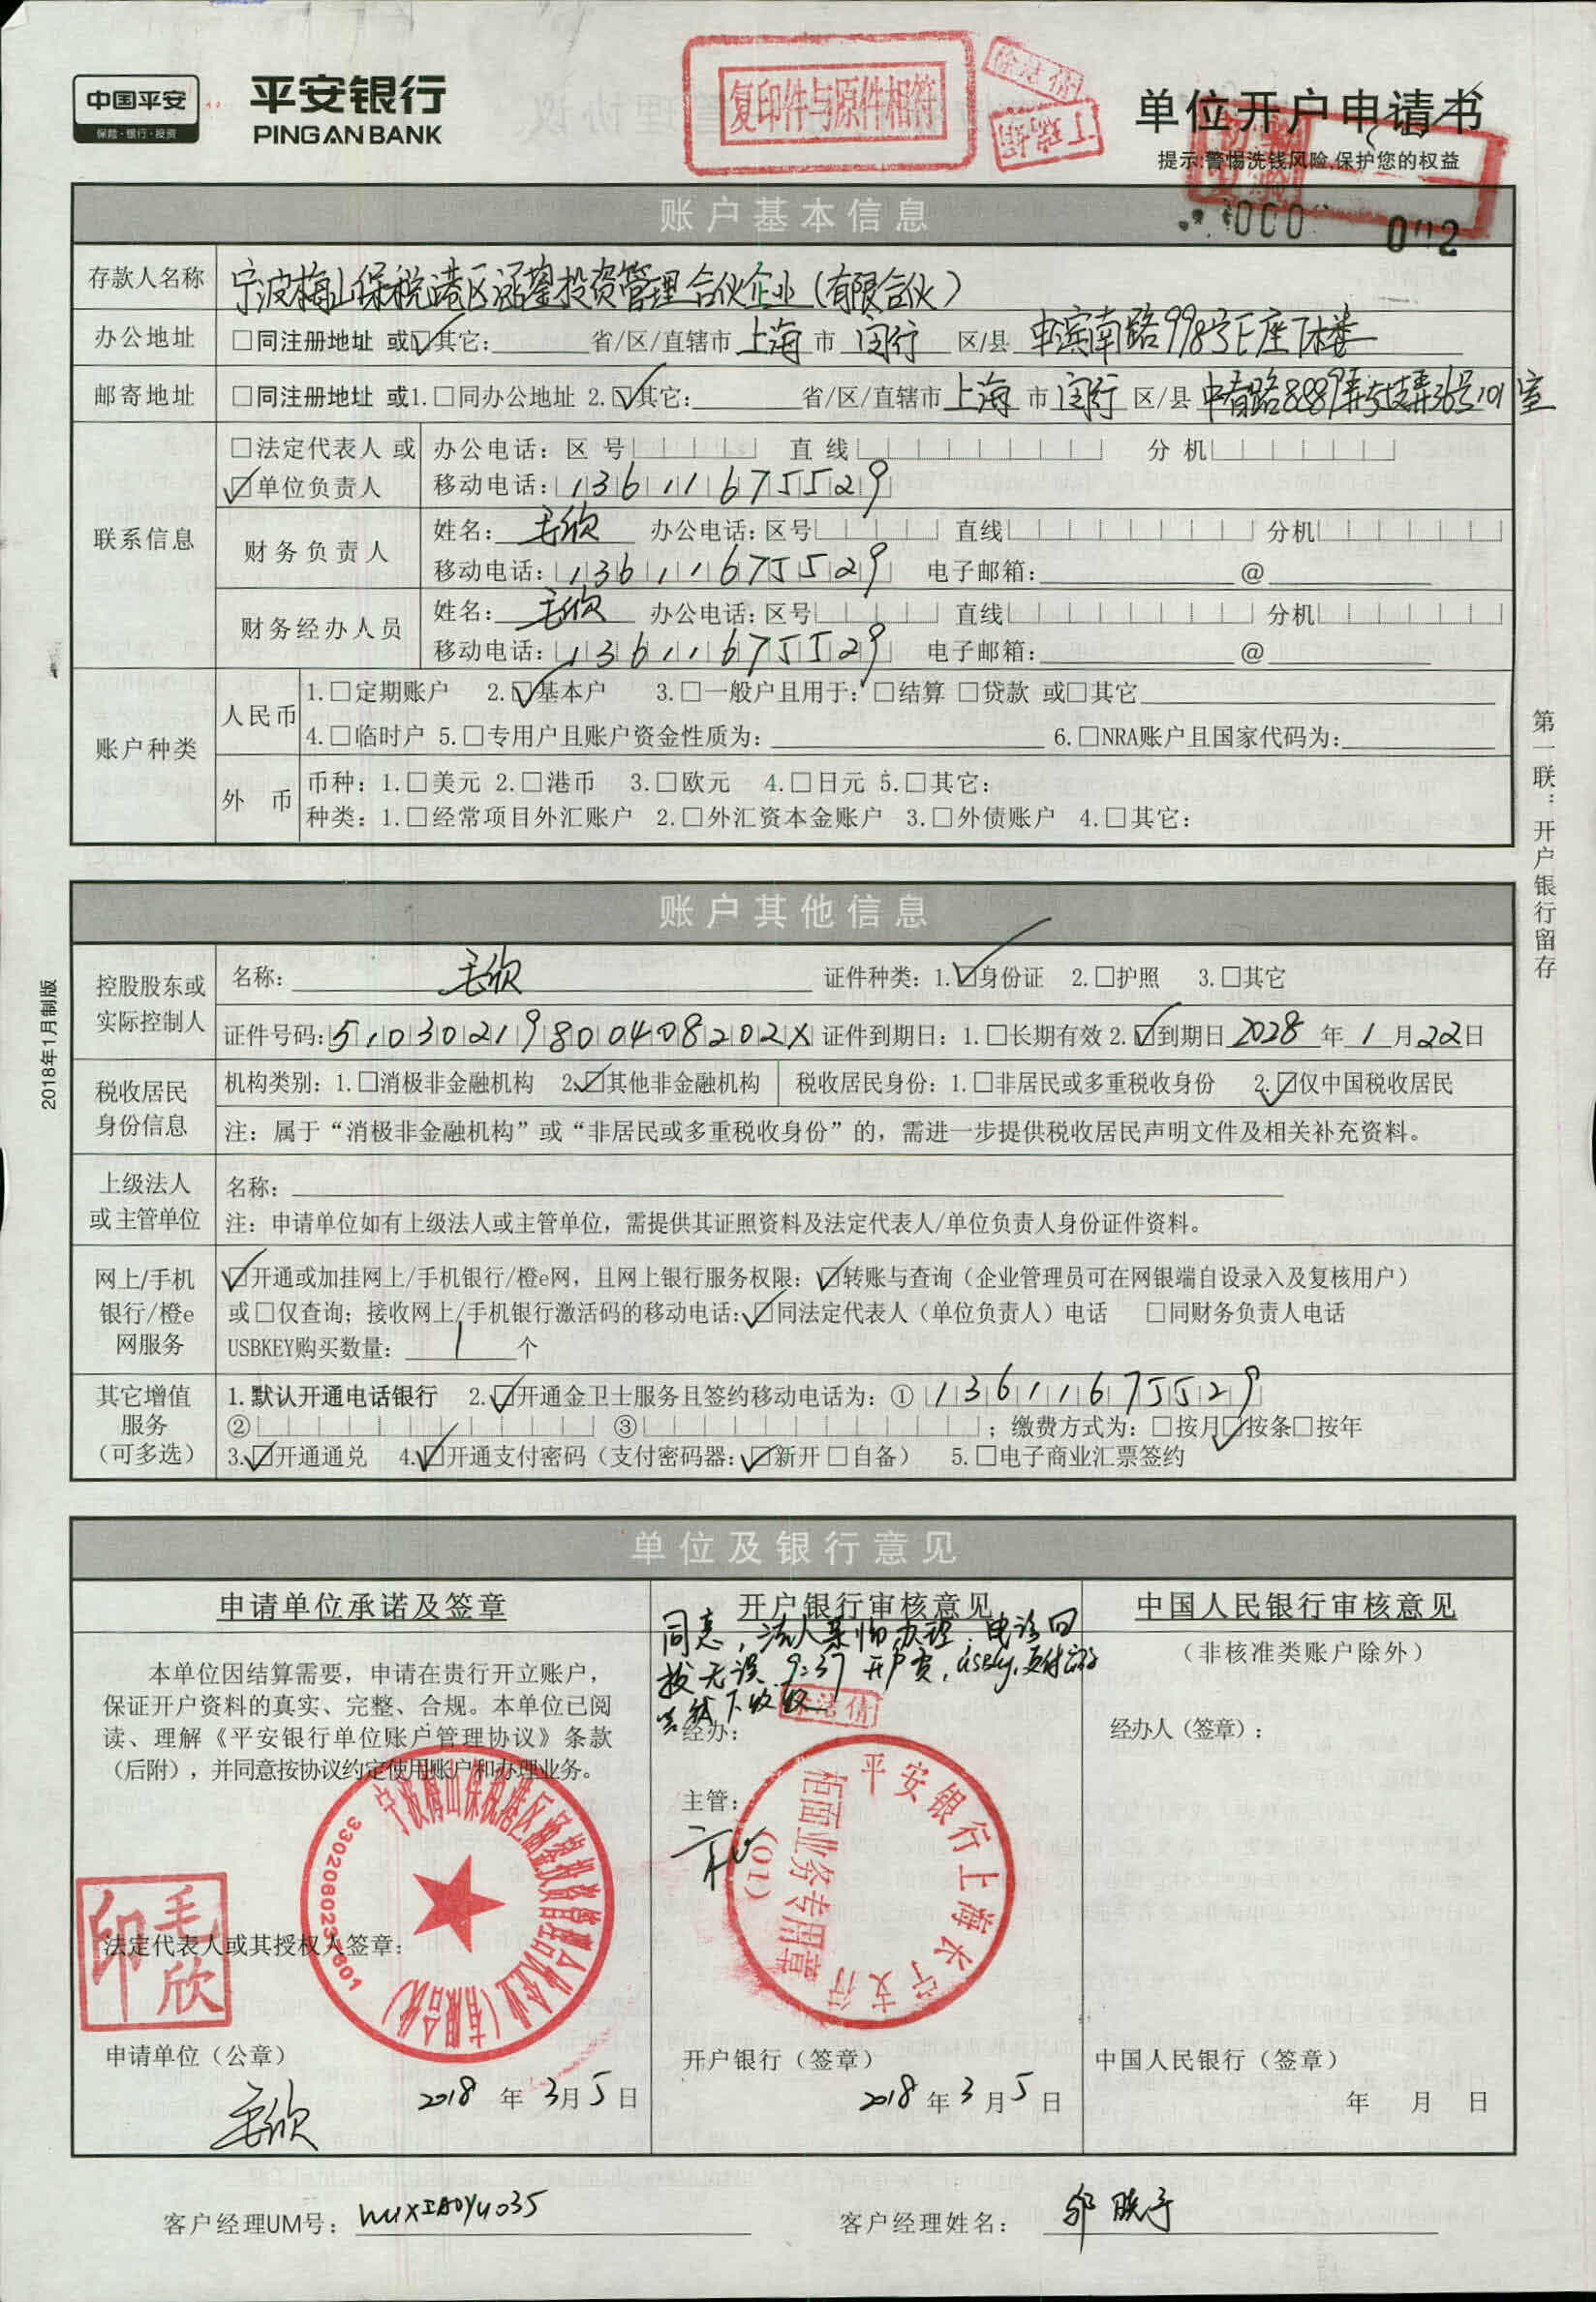 中国平安
保险·银行·投资
平安银行
PINGAN BANK
复印件与原件相符
单位开户申请书
提示:警惕洗钱风险,保护您的权益
账户基本信息
存款人名称 宁波梅山保税港区涵鋆投资管理合伙企业(有限合伙)
办公地址 □同注册地址 或☑其它: 省/区/直辖市 上海 市 闵行 区/县 申滨南路998号E座7楼
邮寄地址 □同注册地址 或1.□同办公地址 2.☑其它: 省/区/直辖市 上海 市 闵行 区/县 中春路8889弄 36号101室
联系信息
□法定代表人 或 办公电话: 区号 直线 分机
☑单位负责人 移动电话: 13611675529
财务负责人
姓名: 毛欣 办公电话: 区号 直线 分机
移动电话: 13611675529 电子邮箱: @
财务经办人员
姓名: 毛欣 办公电话: 区号 直线 分机
移动电话: 13611675529 电子邮箱: @
账户种类
人民币
1.□定期账户 2.☑基本户 3.□一般户且用于: □结算 □贷款 或□其它
4.□临时户 5.□专用户且账户资金性质为: 6.□NRA账户且国家代码为:
外币
币种: 1.□美元 2.□港币 3.□欧元 4.□日元 5.□其它:
种类: 1.□经常项目外汇账户 2.□外汇资本金账户 3.□外债账户 4.□其它:
第一联:开户银行留存
2018年1月制版
账户其他信息
控股股东或实际控制人
名称: 毛欣 证件种类: 1.☑身份证 2.□护照 3.□其它
证件号码: 51030219800408202X 证件到期日: 1.□长期有效 2.☑到期日 2028 年 1 月 22 日
税收居民身份信息
机构类别: 1.□消极非金融机构 2.☑其他非金融机构 税收居民身份: 1.□非居民或多重税收身份 2.☑仅中国税收居民
注: 属于“消极非金融机构”或“非居民或多重税收身份”的, 需进一步提供税收居民声明文件及相关补充资料。
上级法人或主管单位
名称:
注: 申请单位如有上级法人或主管单位, 需提供其证照资料及法定代表人/单位负责人身份证件资料。
网上/手机银行/橙e网服务
☑开通或加挂网上/手机银行/橙e网, 且网上银行服务权限: ☑转账与查询(企业管理员可在网银端自设录入及复核用户)
或□仅查询; 接收网上/手机银行激活码的移动电话: ☑同法定代表人(单位负责人)电话 □同财务负责人电话
USBKEY购买数量: 1 个
其它增值服务(可多选)
1.默认开通电话银行 2.☑开通金卫士服务且签约移动电话为: ① 13611675529
② ③ ; 缴费方式为: □按月☑按条□按年
3.☑开通通兑 4.☑开通支付密码(支付密码器: ☑新开 □自备) 5.□电子商业汇票签约
单位及银行意见
申请单位承诺及签章
本单位因结算需要, 申请在贵行开立账户,
保证开户资料的真实、完整、合规。本单位已阅
读、理解《平安银行单位账户管理协议》条款
(后附), 并同意按协议约定使用账户和办理业务。
宁波梅山保税港区涵鋆投资管理合伙企业(有限合伙)
毛欣印
法定代表人或其授权人签章:
申请单位(公章)
毛欣
2018 年 3月 5 日
开户银行审核意见
同意, 法人亲临办理, 电话回
拨无误 9:37 开户费, USBkey,
经办:
主管:
平安银行上海长宁支行
柜面业务专用章
(01)
开户银行(签章)
2018 年 3 月 5 日
中国人民银行审核意见
(非核准类账户除外)
经办人(签章):
中国人民银行(签章)
年 月 日
客户经理UM号: WUXIAOYU035
客户经理姓名: